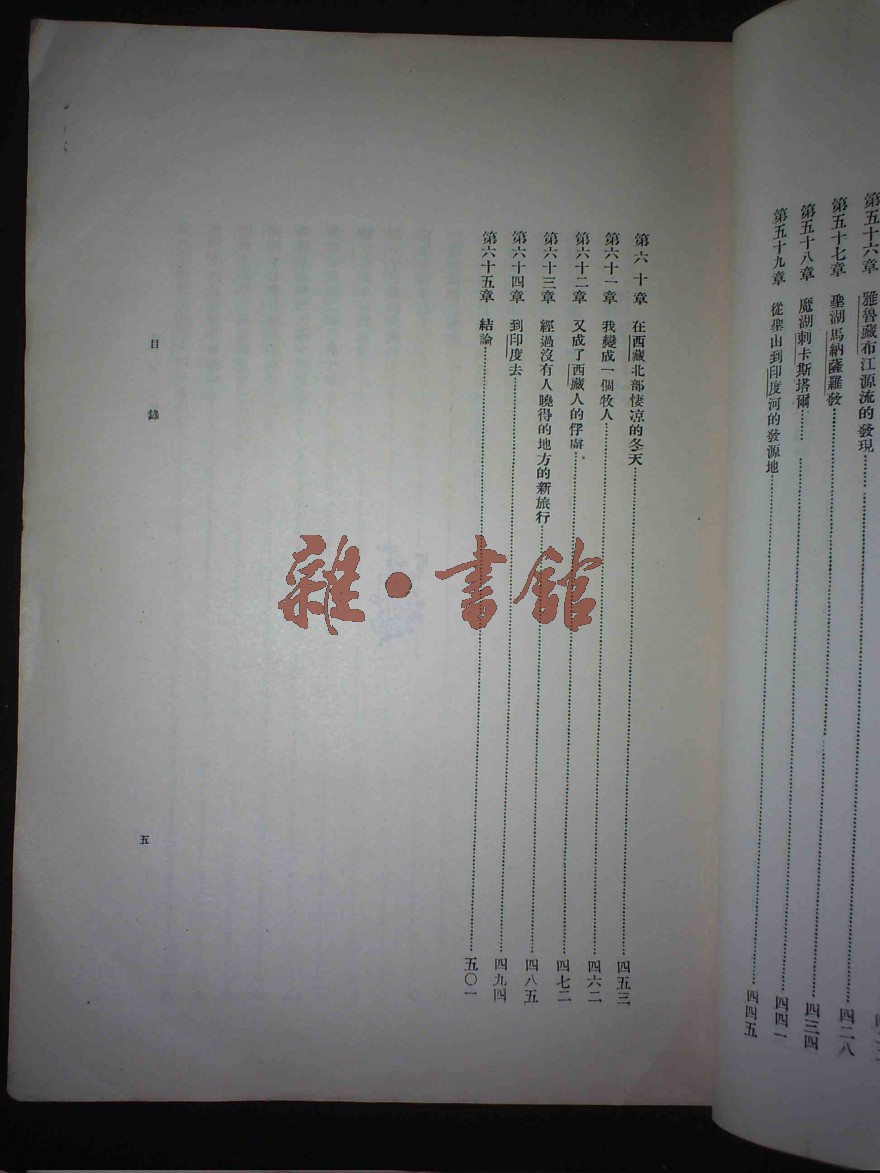 第五十六章 雅魯藏布江源流的發現
第五十七章 聖湖馬納薩羅發 四二八
第五十八章 魔湖刺卡斯塔爾 四三四
第五十九章 從聖山到印度河的發源地 四四一
四四五
第六十章 在西藏北部悽凉的冬天 四五三
第六十一章 我變成一個牧人 四六二
第六十二章 又成了西藏人的俘虜 四七二
第六十三章 經過沒有人曉得的地方的新旅行 四八五
第六十四章 到印度去 四九四
第六十五章 結論 五〇一
目錄
五
雜·書館